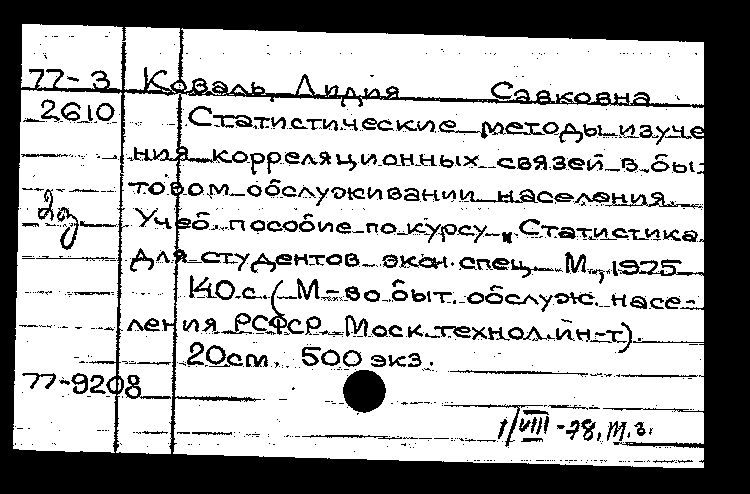 77-3 Коваль, Лидия Савковна
2610 Статистические методы изуче
ния корреляционных связей в быт
товом обслуживании населения.
2оз. Учеб. пособие по курсу "Статистика
для студентов экон. спец. М., 1975
140 с. (М-во быт. обслуж. насе-
ления РСФСР. Моск. технол. ин-т).
20см. 500 экз.
77-9208
1/VIII-78, т.з.